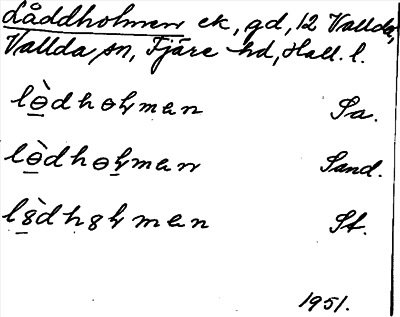 Låddholmen ek, gd, 12 Vallda,
Vallda sn, Fjäre hd, Hall. l.
lɵ̀dhɵɫmən Sa.
lɵ̀dhɵɫmən Sand.
l8̀dh8ɫmən St.
1951.